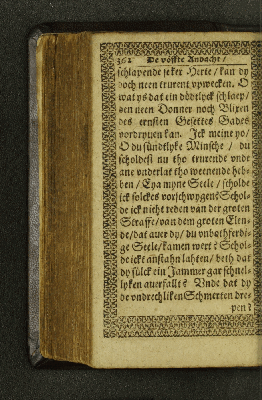 362 De vöffte Andacht /
schlapende seker Herte / kan dy
doch neen trurent vpwecken. O
wat ys dat ein dödtlyck schlaep /
den neen Donner noch Blixen
des ernsten Gesettes Gades
vordryuen kan. Jck meine yo /
O du sündtlyke Minsche / du
scholdest nu tho trurende vnde
ane vnderlat tho weenende heb-
ben / Eya myne Seele / scholde
ick solckes vorschwygen? Schol-
de ick nicht reden van der groten
Straffe / van dem groten Elen-
de / dat auer dy / du vnbothferdi-
ge Seele / kamen wert? Schol-
de ickt anstahn lahten / beth dat
dy sülck ein Jammer gar schnel-
lyken auerfallt? Vnde dat dy
de vndrechliken Schmerten dre-
pen?